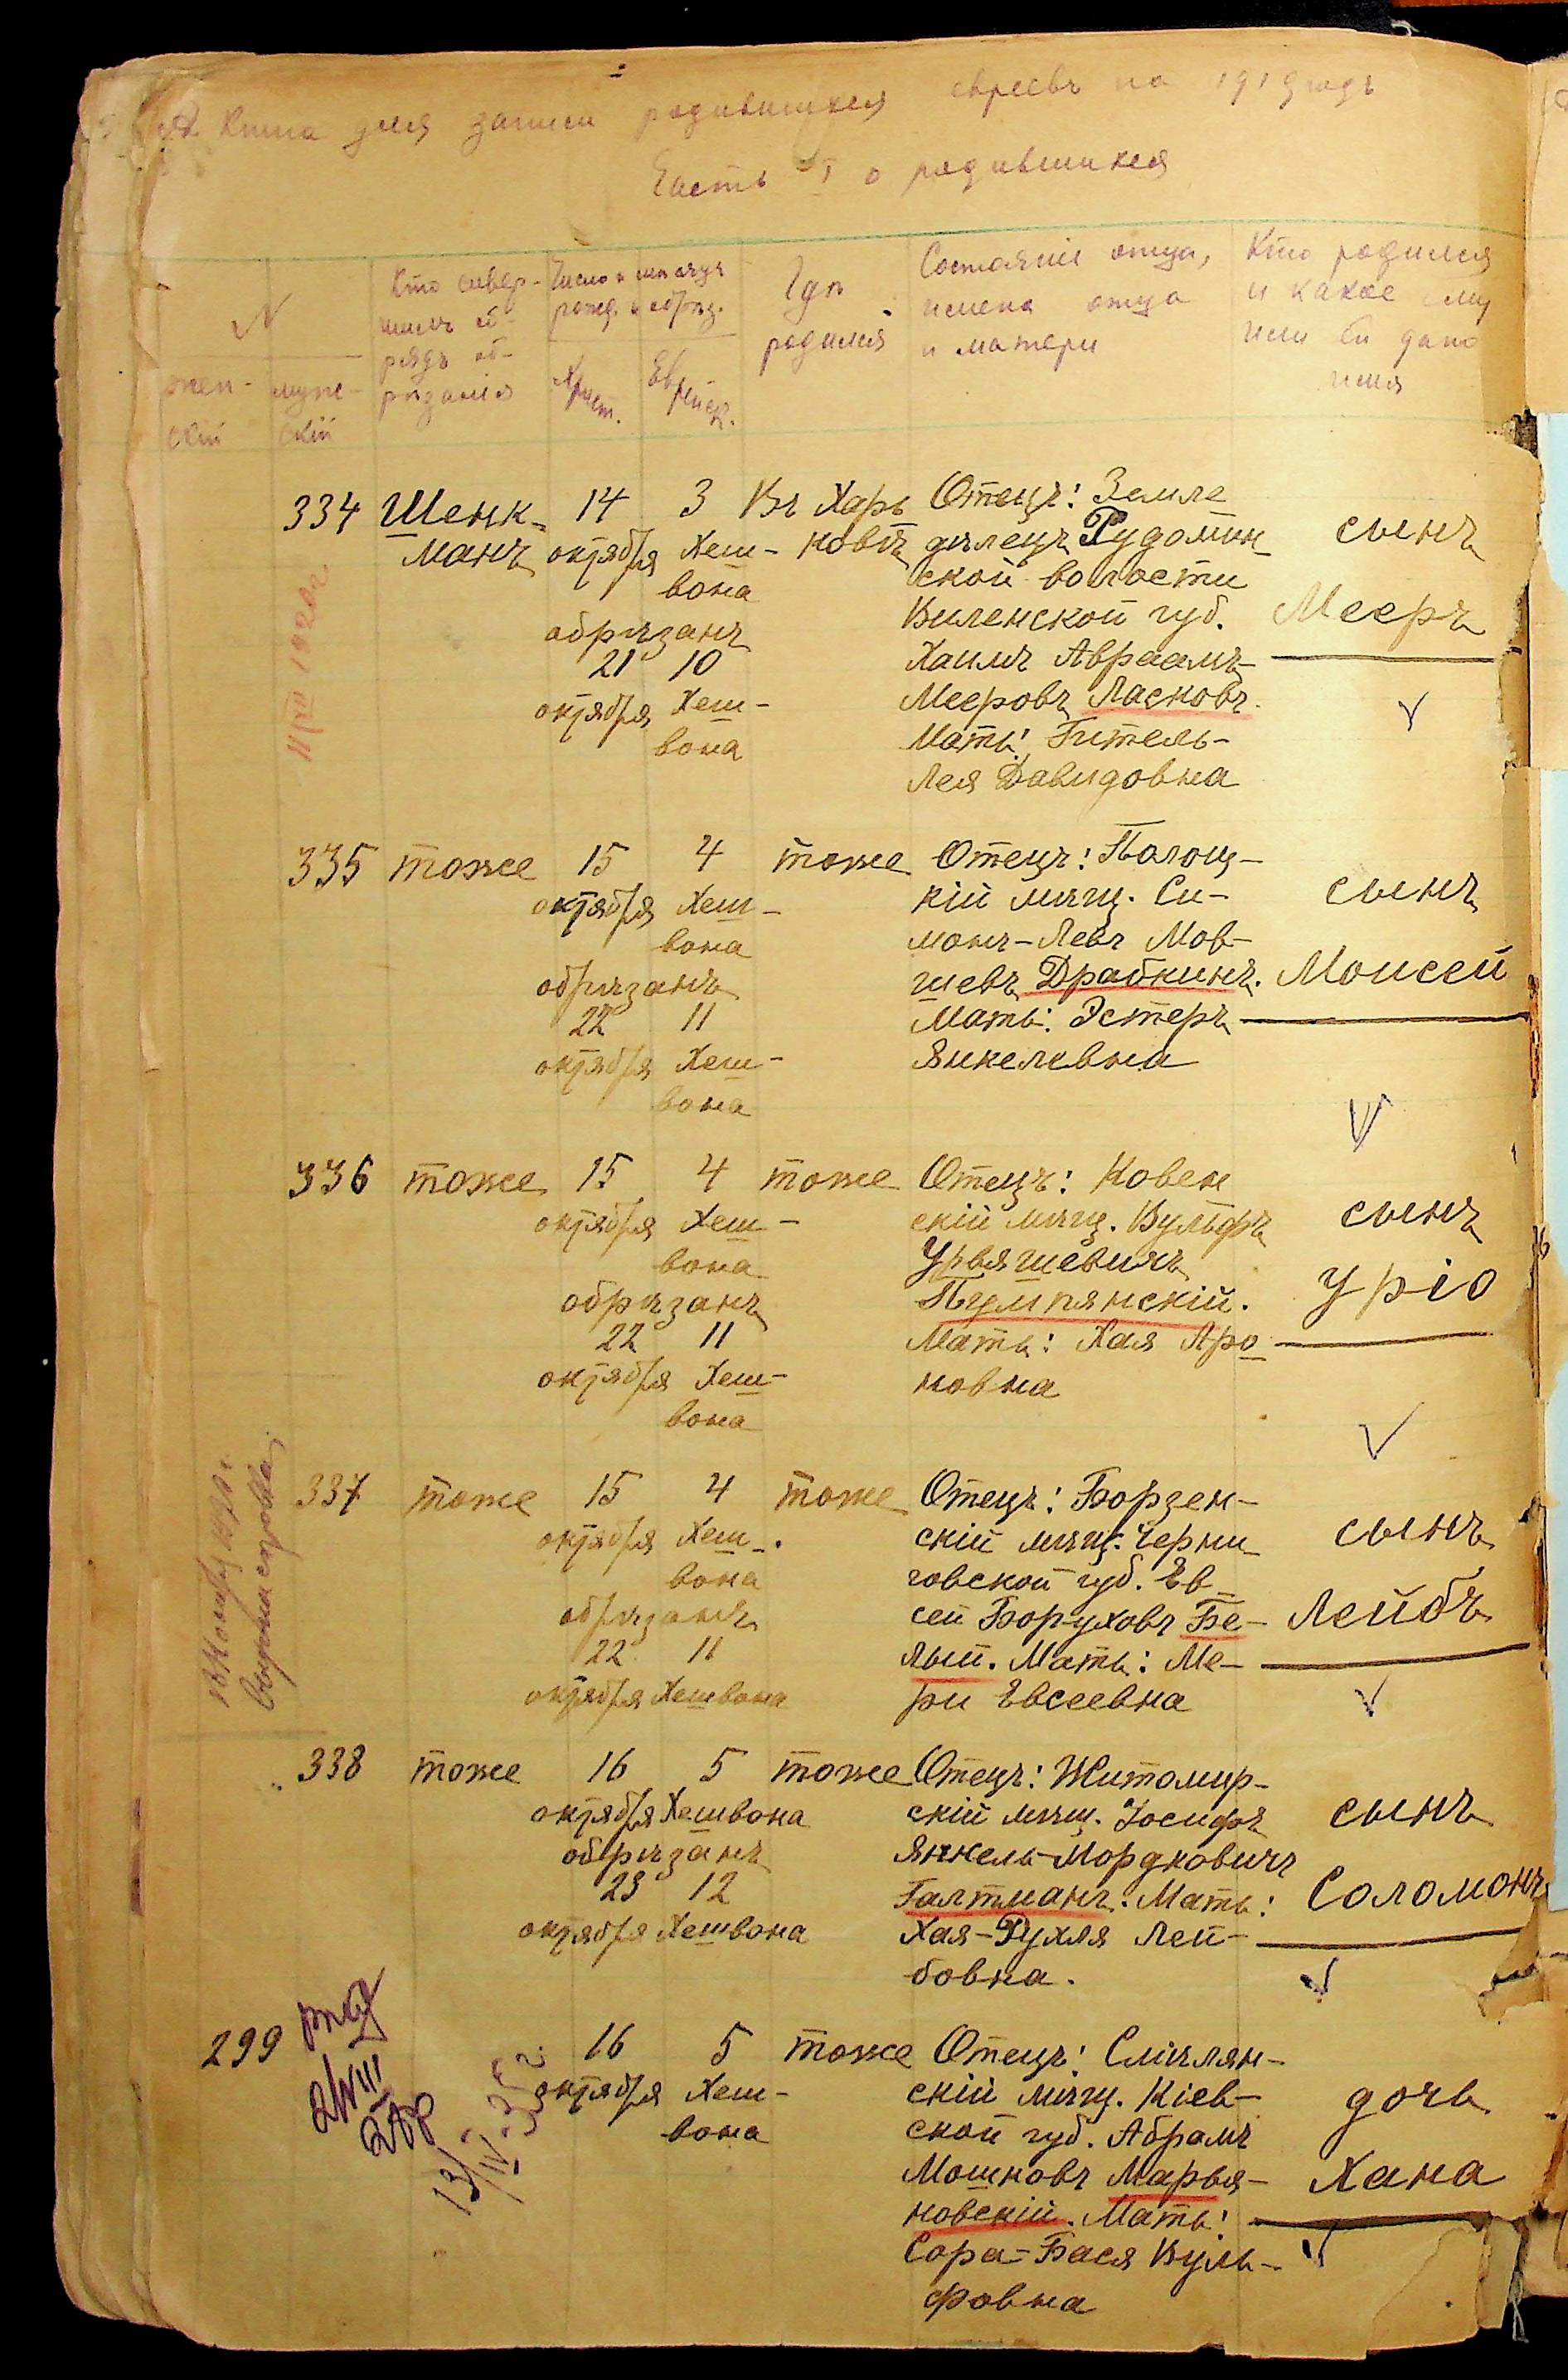 Книга для записи родившихся евреевъ на 1919 годъ
Часть I о родившихся
N
жен-
скій
муже-
скій
Кто совер-
шилъ об-
рядъ об-
рѣзанія
Число и мѣсяцъ
рожд. и обрѣз.
Христ.
Еврейск.
Гдѣ
родился
Состояніе отца,
имена отца
и матери
Кто родился
и какое ему
или ей дано
имя
334 Шенк-
манъ
14 3
октября Хеш-
вона
обрѣзанъ
21 10
октября Хеш-
вона
Въ Харь
ковѣ
Отецъ: Земле
дѣлецъ Рудомин
ской волости
Виленской губ.
Хаимъ Авраамъ-
Мееровъ Ласковъ.
Мать: Гитель-
Лея Давидовна
сынъ
Мееръ
335 тоже 15 4 тоже
октября Хеш-
вона
обрѣзанъ
22 11
октября Хеш-
вона
Отецъ: Полоц-
кій мѣщ. Си-
монъ-Левъ Мов-
шевъ Драбкинъ.
Мать: Эстеръ
Янкелевна
сынъ
Моисей
336 тоже 15 4 тоже
октября Хеш-
вона
обрѣзанъ
22 11
октября Хеш-
вона
Отецъ: Ковен
скій мѣщ. Вульфъ
Урьяшевичъ
Пумпянскій.
Мать: Хая Аро
новна
сынъ
Уріо
337 тоже 15 4 тоже
октября Хеш-
вона
обрѣзанъ
22 11
октября Хешвона
Отецъ: Борзен-
скій мѣщ. Черни
говской губ. Ев
сей Боруховъ Бе-
лый. Мать: Ме-
ри Евсеевна
сынъ
Лейбъ
338 тоже 16 5 тоже
октября Хешвона
обрѣзанъ
23 12
октября Хешвона
Отецъ: Житомир-
скій мѣщ. Іосифъ
Янкель-Мордковичъ
Галтманъ. Мать:
Хая-Рухля Лей-
бовна.
сынъ
Соломонъ
299
16 5 тоже
октября Хеш-
вона
Отецъ: Смѣлян-
скій мѣщ. Кіев-
ской губ. Абрамъ
Мошковъ Марья-
новскій. Мать:
Сора-Бася Вуль-
фовна
дочь
Хана